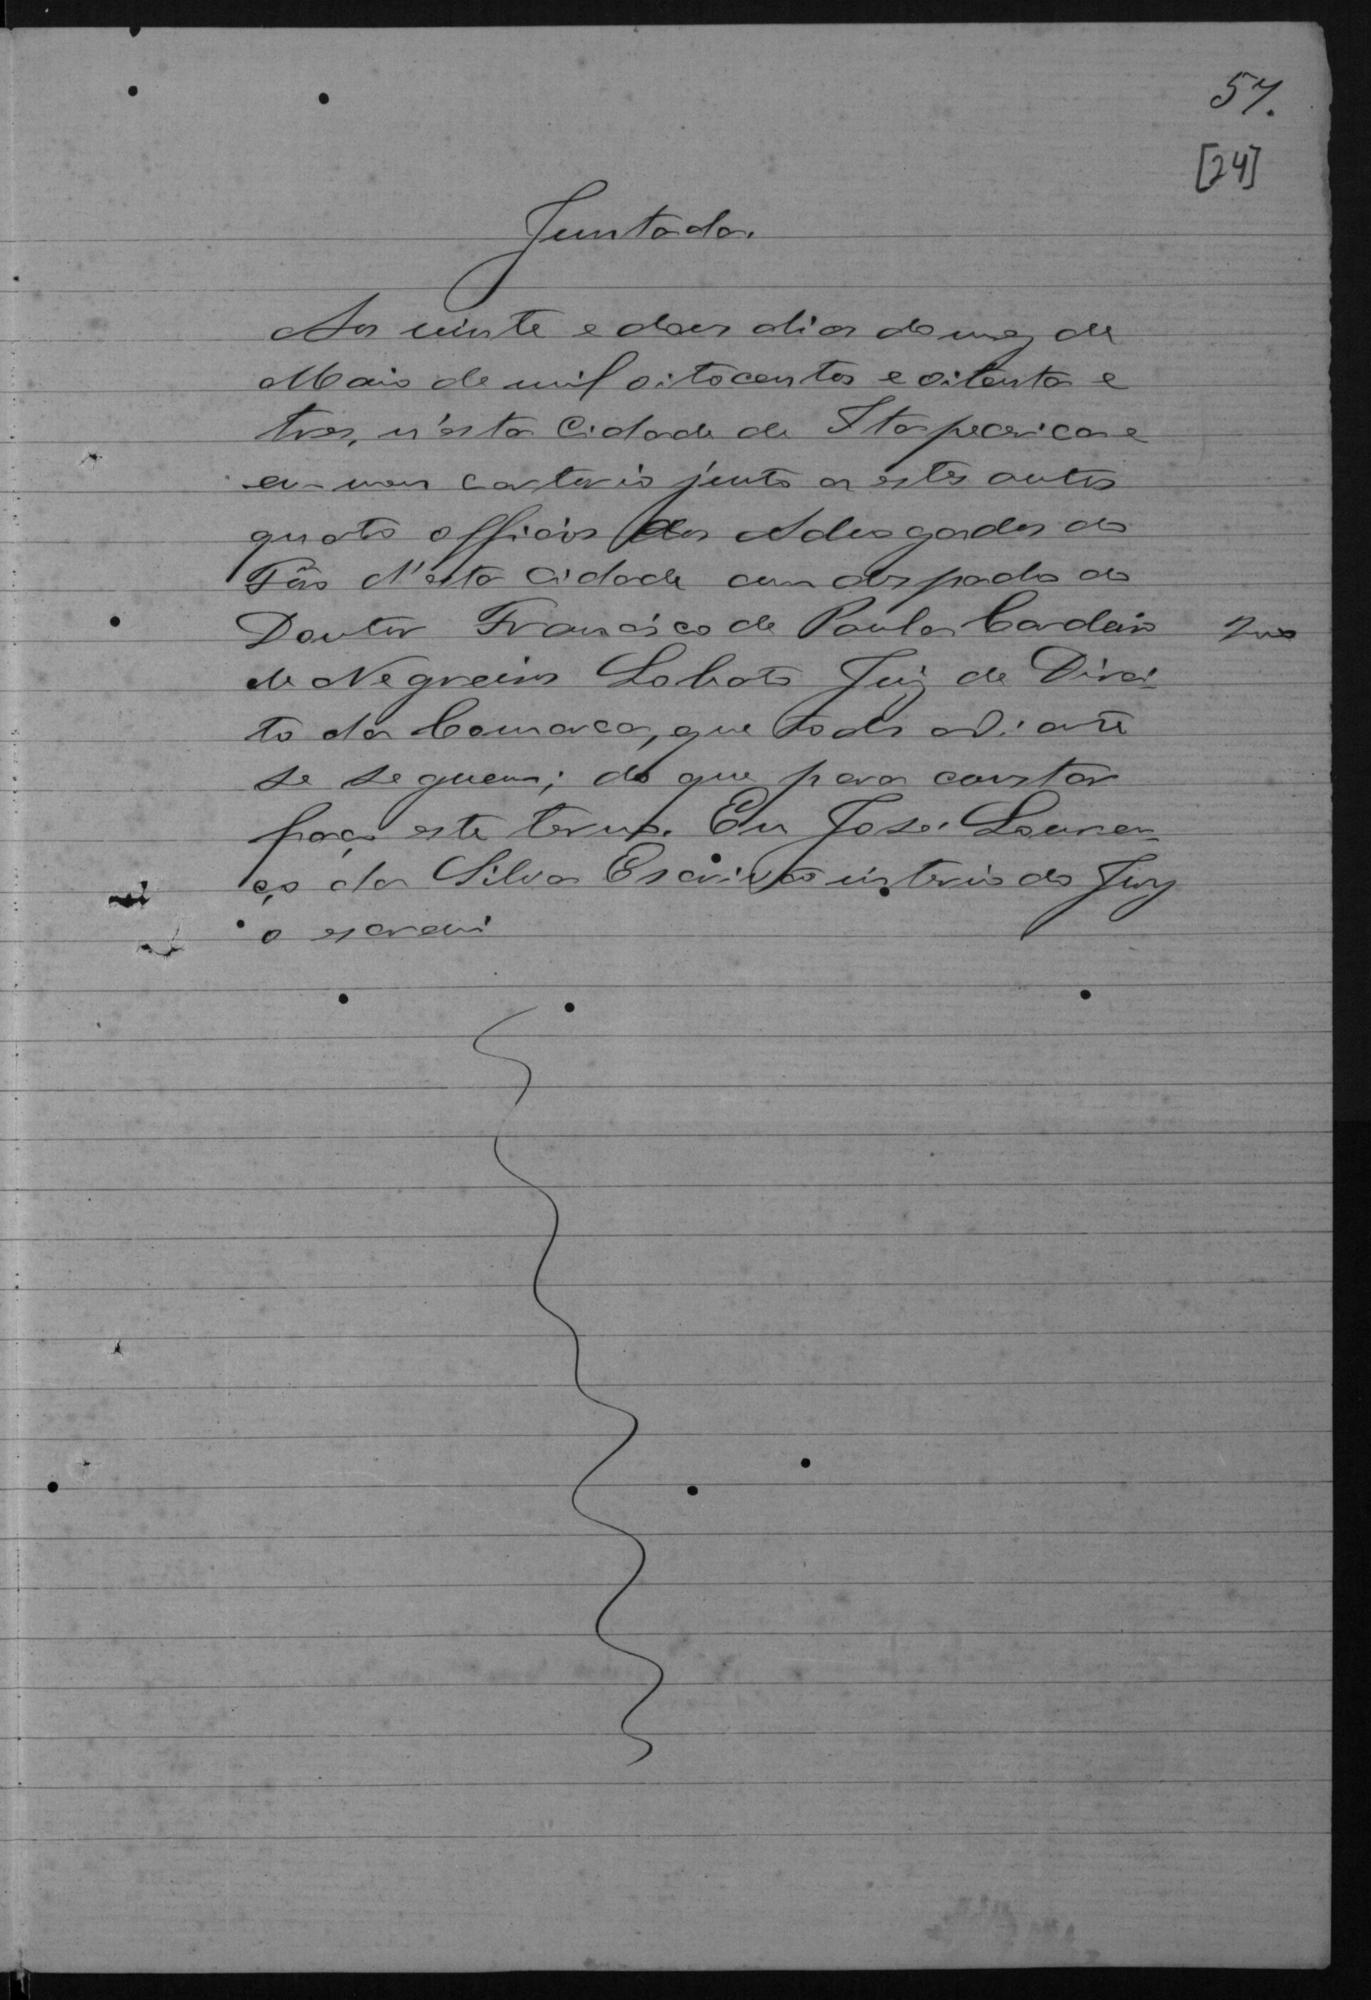 57.
[24]
Juntada.
Aos vinte e dous dias do mez de
Maio de mil oitocentos e oitenta e
tres, n'esta Cidade de Itapecerica e
em meu cartorio junto a estes autos
quatro officios dos Advogados do
Fôro d'esta Cidade com despacho do
Doutor Francisco de Paula Cordeiro
de Negreiros Lobato Juiz de Direi-
to da Comarca, que todos adiante
se seguem; do que para constar
faço este termo. Eu José Louren-
ço da Silva Escrivão interino do Jury
o escrevi